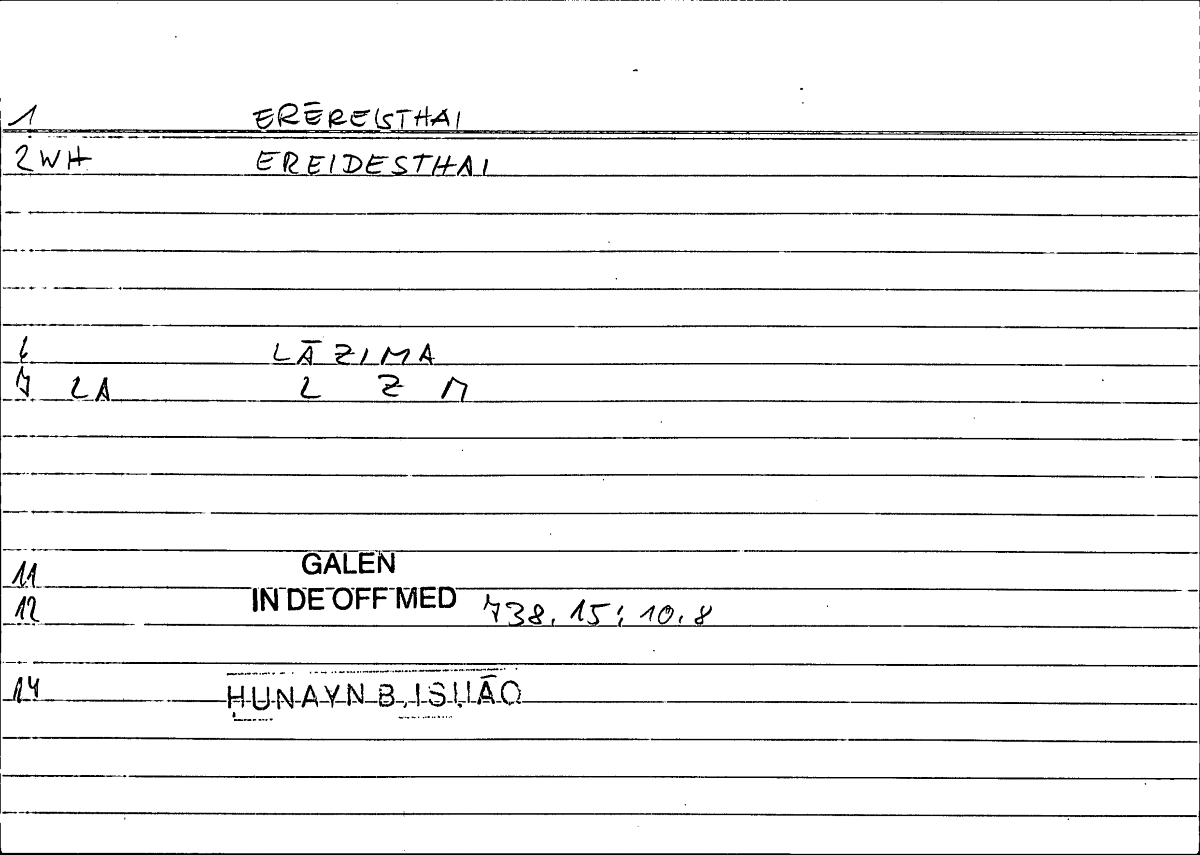 1 ERĒREISTHAI
2 WH EREIDESTHAI
6 LĀZIMA
7 LA L Z M
11 GALEN
12 IN DE OFF MED 738.15; 10.8
14 ḤUNAYN B. ISḤĀQ